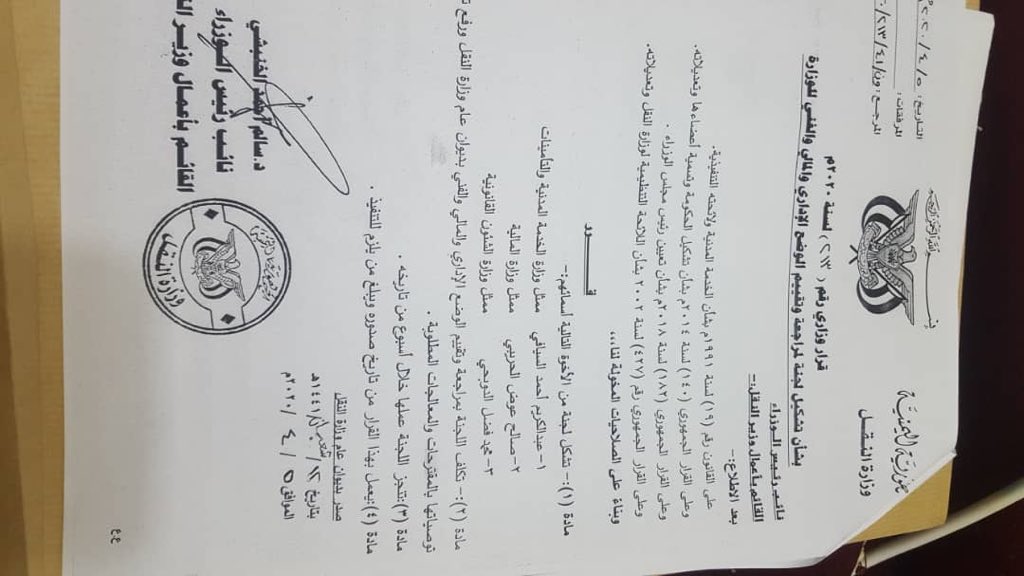 بسم الله الرحمن الرحيم
الجمهورية اليمنية
وزارة النقل
التاريخ: ٥/٤/٢٠٢٠م
المرفقات:
المرجع:
قرار وزاري رقم (٢١٣) لسنة ٢٠٢٠م
بشان تشكيل لجنة لمراجعة وتقييم الوضع الإداري والمالي والفني للوزارة
نائب رئيس الوزراء
القائم بأعمال وزير النقل:-
بعد الاطلاع:-
على القانون رقم (١٩) لسنة ١٩٩١م بشان الخدمة المدنية ولائحته التنفذية.
وعلى القرار الجمهوري (١٤٠) لسنة ٢٠١٤م بشان تشكيل الحكومة وتسمية أعضاءها وتعديلاته.
وعلى القرار الجمهوري (١٨٢) لسنة ٢٠١٨م بشان تعيين رئيس مجلس الوزراء .
وعلى القرار الجمهوري رقم (٤٢٧) لسنة ٢٠٠٢ بشان اللائحة التنظيمية لوزارة النقل وتعديلاته.
وبناة على الصلاحيات المخولة لنا،،،
قـــــرر
مادة (١):- تشكل لجنة من الأخوة التالية أسمائهم:-
١- عبدالكريم أحمد السيافي ممثل وزارة الخدمة المدنية والتأمينات
٢- صالح عوض الحريبي ممثل وزارة المالية
٣- محمد فضل الدويحي ممثل وزارة الشئون القانونية
مادة (٢):- تكلف اللجنة بمراجعة وتقييم الوضع الإداري والمالي والفني بديوان عام وزارة النقل ورفع
توصياتها بالمقترحات والمعالجات المطلوبة .
مادة (٣):تنجز اللجنة عملها خلال أسبوع من تاريخه .
مادة (٤):يعمل بهذا القرار من تاريخ صدوره ويبلغ من يلزم للتنفيذ .
صدر بديوان عام وزارة النقل
بتاريخ ١٢/ شعبان/١٤٤١هـ
الموافق ٥ / ٤ /٢٠٢٠م
د.سالم أحمد الخنبشي
نائب رئيس الوزراء
القائم بأعمال وزير
الجمهورية اليمنية
وزارة النقل
ع.ع